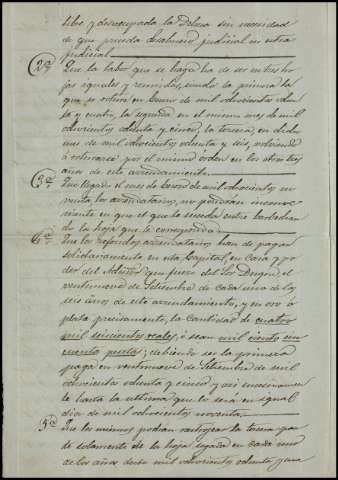 libre y desocupada la Dehesa sin necesidad
de que preceda desahucio judicial ni extra
judicial
2ª Que la labor que se haga ha de ser en tres ho
jas iguales y reunidas, siendo la primera la
que se rotura en Enero de mil ochocientos ochen
ta y cuatro, la segunda en el mismo mes de mil
ochocientos ochenta y cinco, la tercera en dicho
mes de mil ochocientos ochenta y seis, volviendo
á roturarse por el mismo orden en los otros tres
años de este arrendamiento
3ª Que llegado el mes de Enero de mil ochocientos no
venta, los arrendatarios, no pondrán inconve
niente en que el que les suceda entre barbechando
de la hoja que le corresponda
4ª Que los referidos arrendatarios han de pagar
solidariamente en esta Capital, en casa y po
der del Admor que fuere del Sor Duque, el
veintinueve de Setiembre de cada uno de los
seis años de este arrendamiento, y en oro ó
plata precisamente, la cantidad de cuatro
mil seiscientos reales, ó sean mil ciento cin
cuenta pesetas; debiendo ser la primera
paga en veintinueve de Setiembre de mil
ochocientos ochenta y cinco y así sucesivamen
te hasta la última que lo será en igual
día de mil ochocientos noventa.
5ª Que los mismos podrán rastrojear la tercera par
te solamente de la hoja segada en cada uno
de los años de mil ochocientos ochenta y